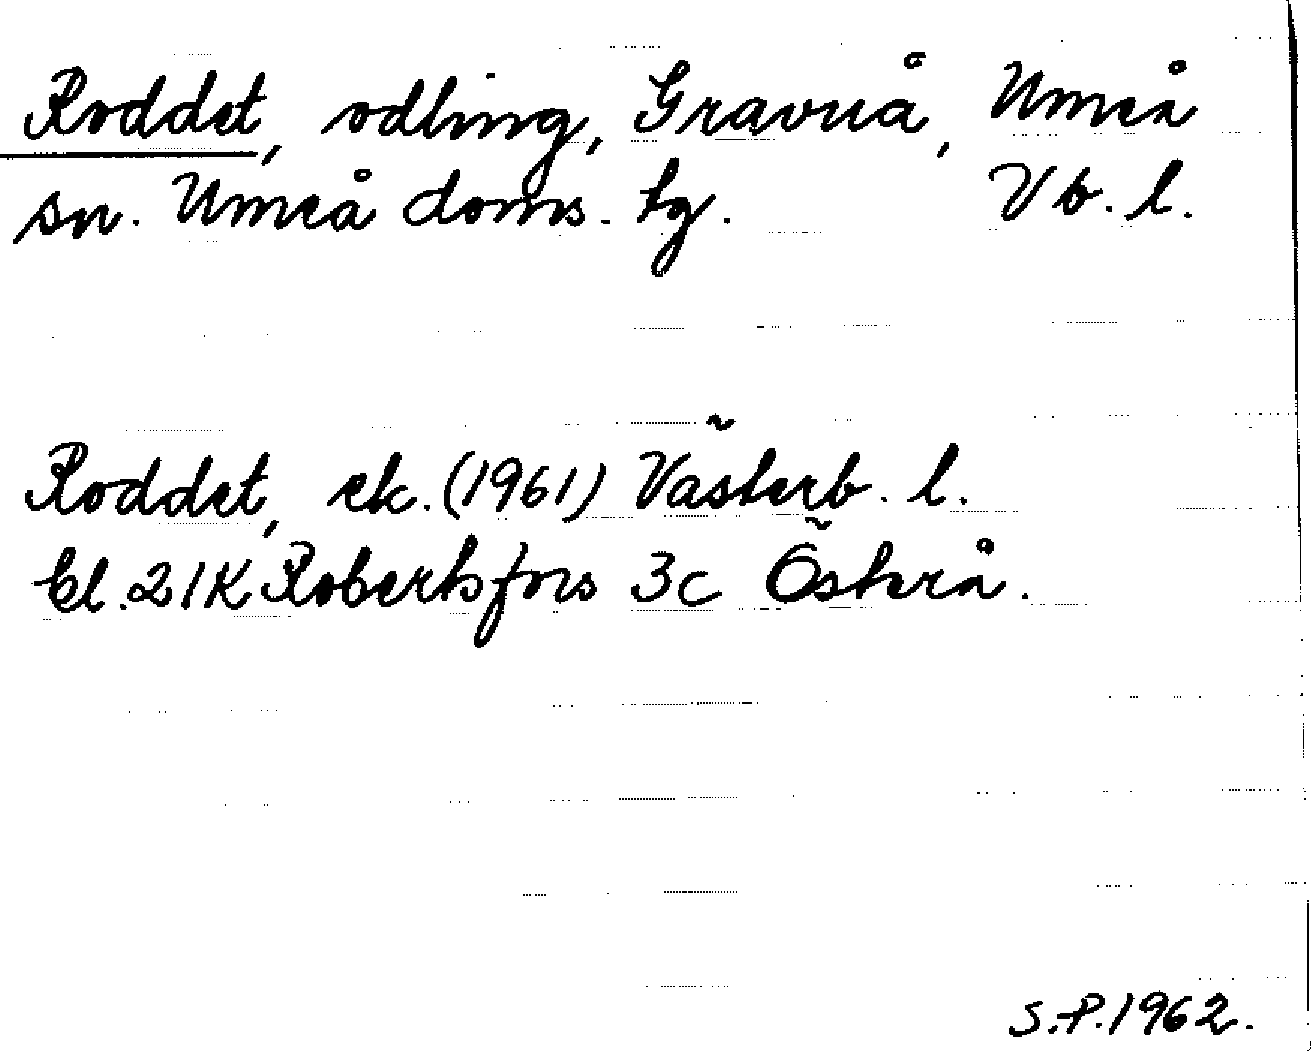 Roddet, odling, Gravnå, Umeå
sn. Umeå doms. tg. Vb. l.
Roddet, ek. (1961) Västerb. l.
bl. 21K Robertsfors 3c Österå.
S.P. 1962.